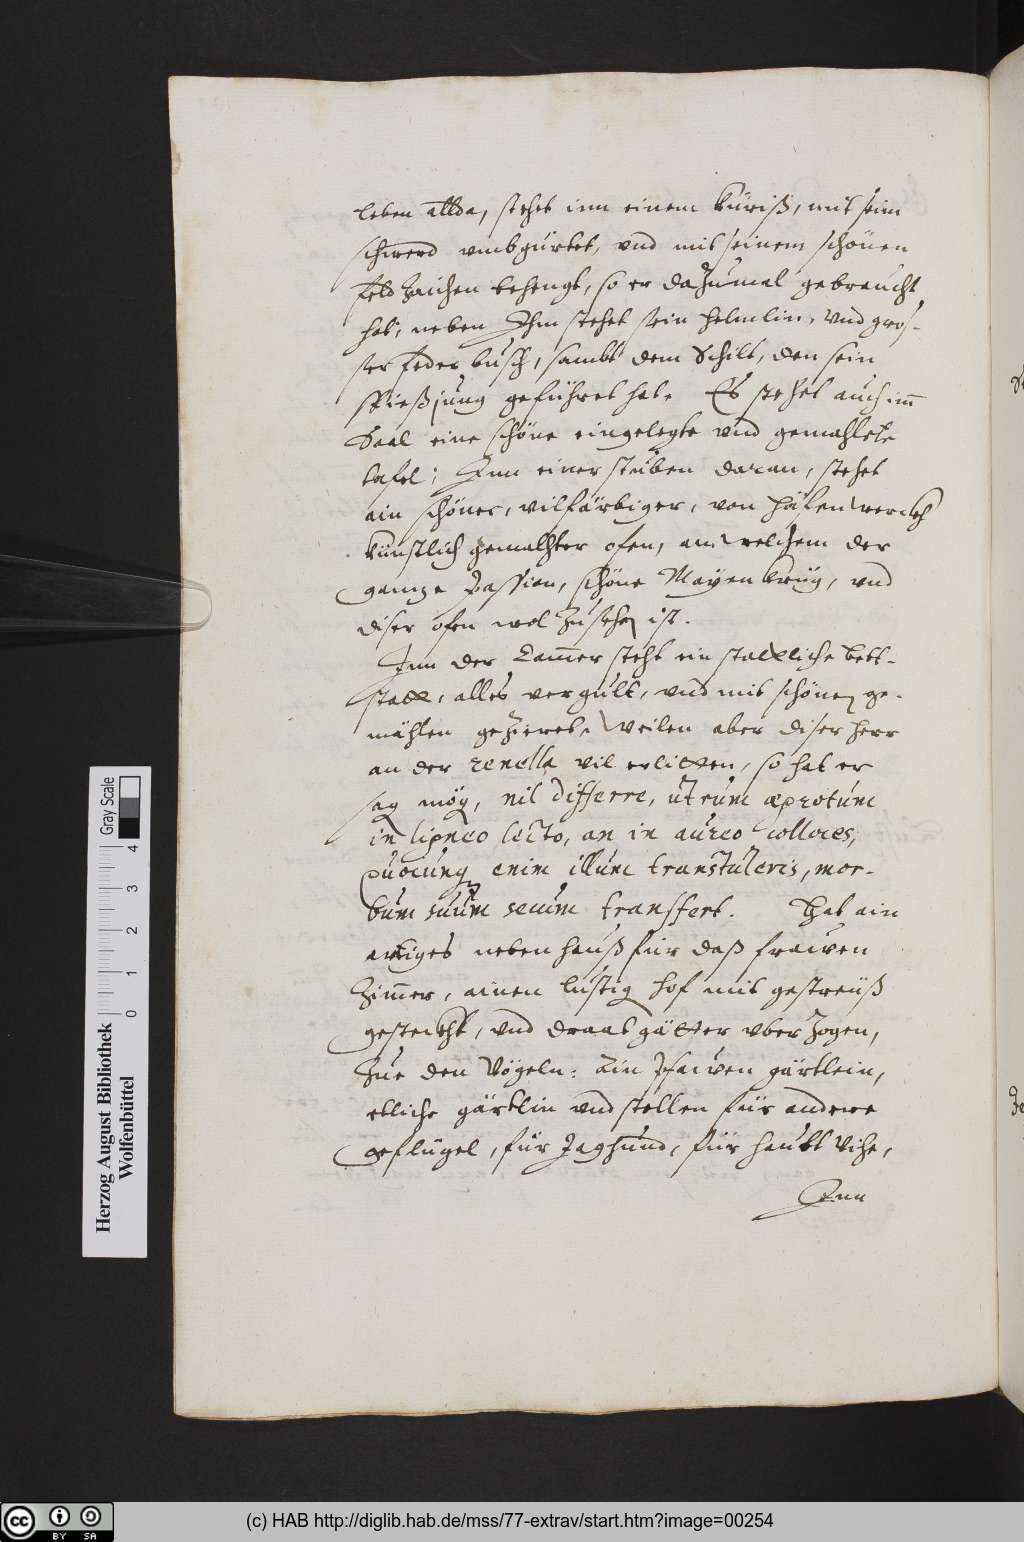 leben allda, stehet inn einem küriß, mit seim
schwerd vmbgürtet, vnd mit seinem schönen
feld zaichen behengt, so er dazumal gebraucht
hat, neben Ihm stehet sein helmlin, vnd gros-
ser feder busch, sambt dem Schilt, den sein
spießjung geführet hat. Es stehet auch im̄
Saal eine schöne eingelegte vnd gemahlete
tafel; Inn einer stuben daran, stehet
ain schöner, vilfärbiger, von häfenwerckh
künstlich gemalhter ofen, am welchem der
gantze Passion, schöne Mayen krüg, vnd
diser ofen wol zu sehen ist.
Inn der Cam̄er steht ein stattliche bett-
statt, alles vergült, vnd mit schönen ge-
mählen gezieret, Weilen aber diser herr
an der renella vil erlitten, so hat er
sag mög, nil differre, utrum ægrotum
in ligneo lecto, an in aureo colloces,
quocunq enim illum transtuleris, mor-
bum suum secum transfert. Hat ain
artiges neben hauß für daß frawen
Zim̄er, ainen lustig hof mit gestreüß
gesteckht, vnd draat gätter vberzogen,
zue den Vögeln: Ain Pfawen gärtlein,
etliche gärtlin vnd stellen für andere
geflügel, für Jaghund, für haubt Vihe,
Inn
Herzog August Bibliothek
Wolfenbüttel
Gray Scale
0 1 2 3 4
cc BY SA
(c) HAB http://diglib.hab.de/mss/77-extrav/start.htm?image=00254